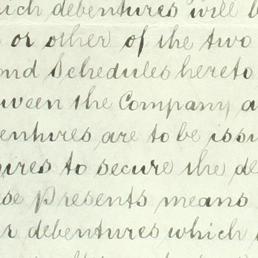 ich debentures will b
or other of the two
ond Schedules hereto
ween the Company a
entures are to be issu
ires to secure the de
se Presents means
r debentures which